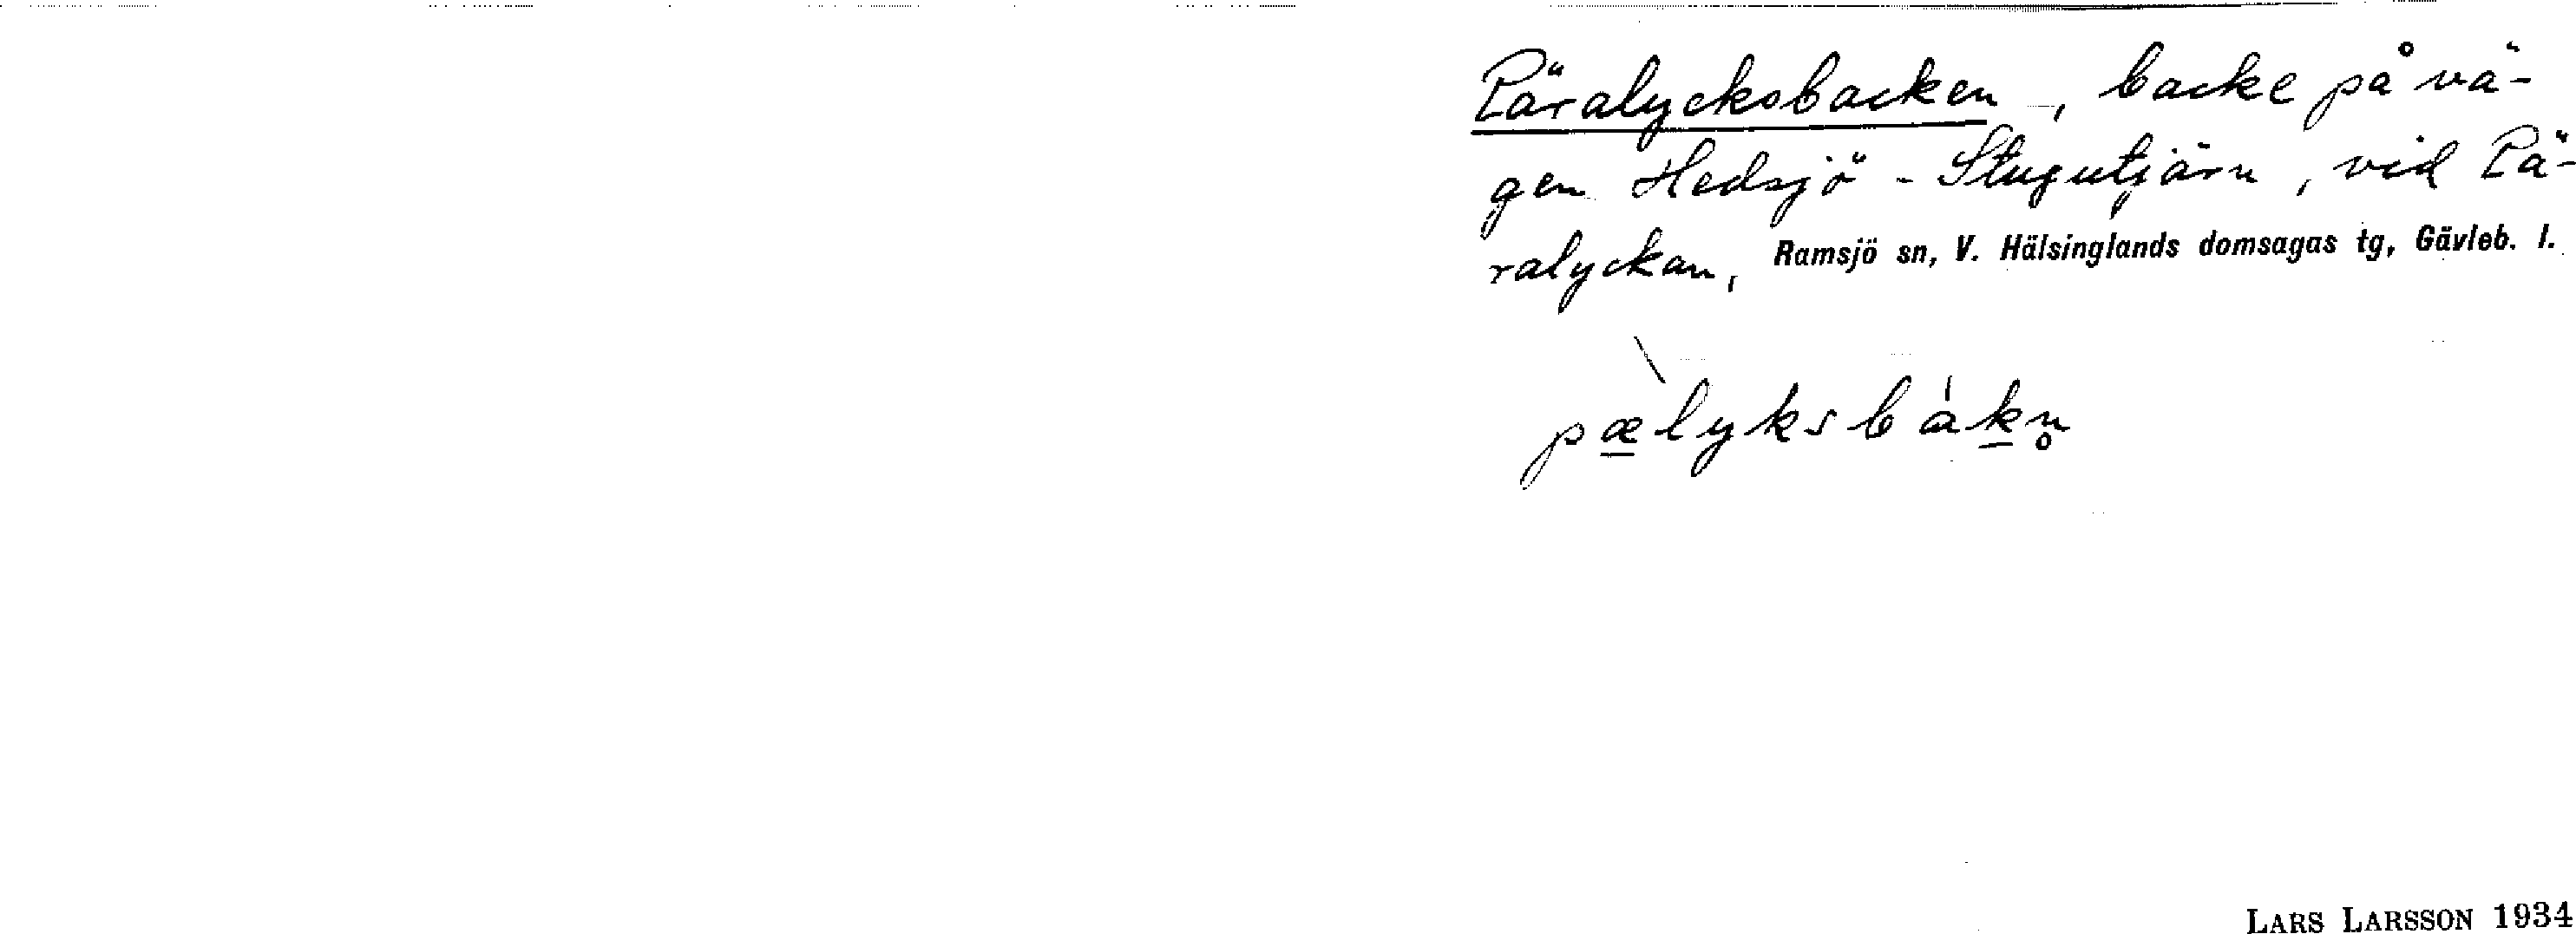 Päralycksbacken -, backe på vä-
gen Hedsjö - Stugutjärn, vid Pä-
ralyckan, Ramsjö sn, V. Hälsinglands domsagas tg, Gävleb. l.
pæ̱̀lyksbákn̥
LARS LARSSON 1934